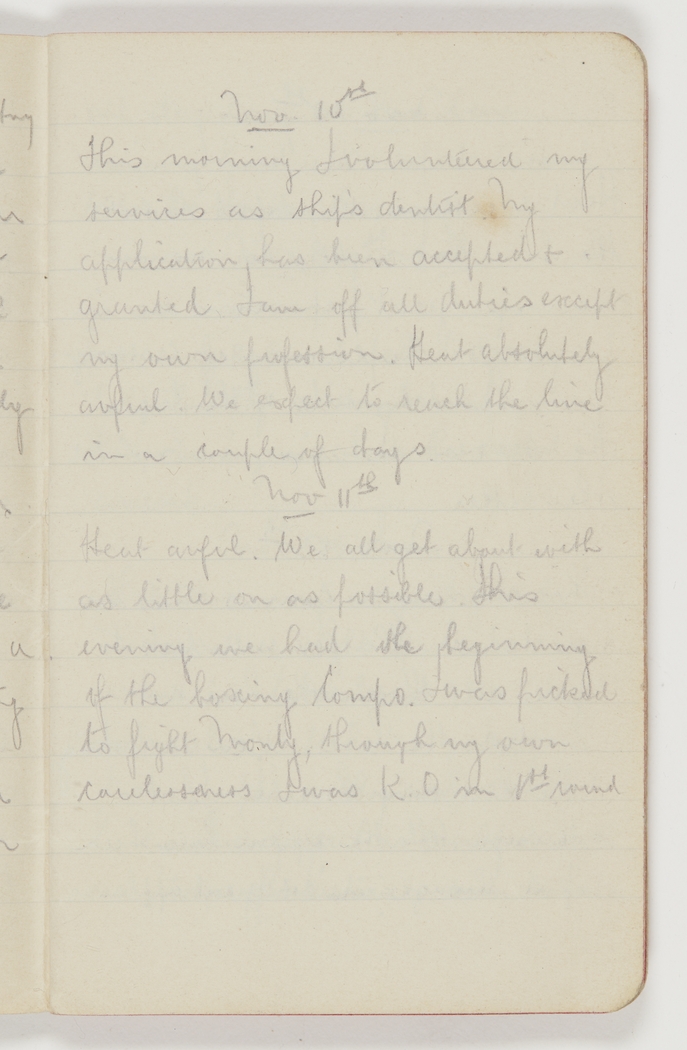 Nov. 10th
This morning I voluntered my
services as ship's dentist. My
application, has been accepted +
granted I am off all duties except
my own profession. Heat absolutely
awful. We expect to reach the line
in a couple of days.
Nov 11th
Heat awful. We all get about with
as little on as possible. This
evening we had the beginning
of the boxing Compo. I was picked
to fight Monty, through my own
carelessness I was K.O in 1st round